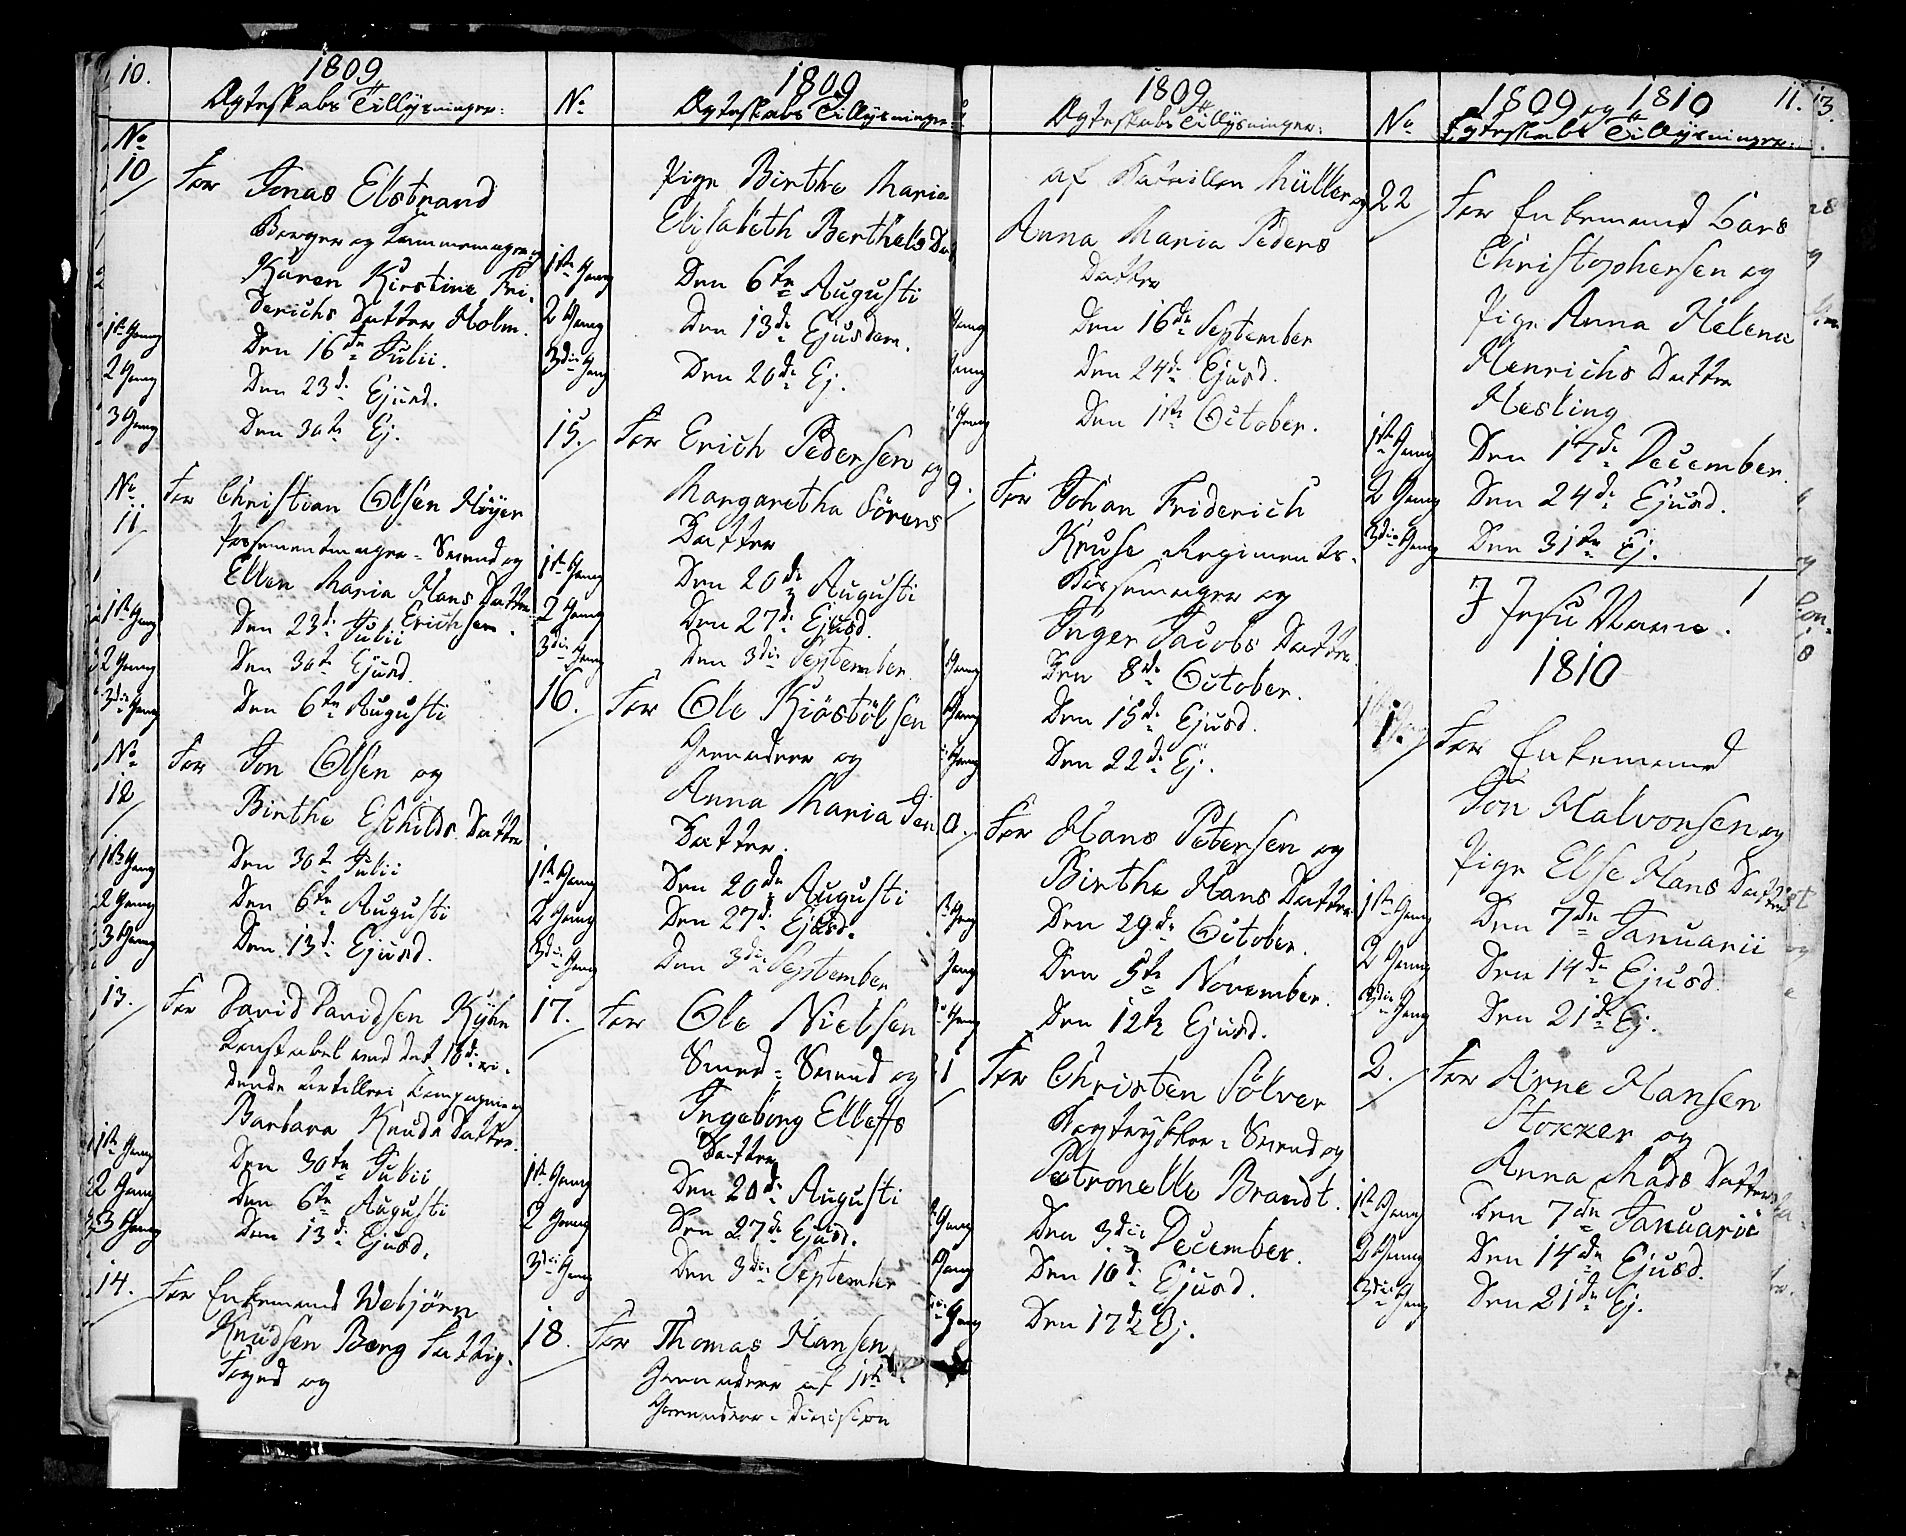 10.
1809
Ægteskabs Tillysninger:
No
10 For Jonas Elstrand
Borger og Kammemager og
Karen Kirstine Fri-
derichs Datter Holm.
1ste Gang Den 16de Julii.
2 Gang Den 23de Ejusd.
3 Gang Den 30te Ej.
No 11 For Christian Olsen Höyer
Possementmager-Svend og
Ellen Maria Hans Datter
Erichsen.
1ste Gang Den 23de Julii
2 Gang Den 30te Ejusd.
3die Gang Den 6te Augusti
No 12 For Jon Olsen og
Birthe Eschilds Datter
1ste Gang Den 30te Julii
2 Gang Den 6te Augusti
3 Gang Den 13de Ejusd.
13. For David Davidsen Kyhn
Constabel ved det 10de ri-
dende Artilleri Compagnie og
Barbara Knuds Datter.
1ste Gang Den 30te Julii
2 Gang Den 6te Augusti
3 Gang Den 13de Ejusd.
14. For Enkemand Webjörn
Knudsen Berg Fattig-
Foged og
1809
No Ægteskabs Tillysninger:
Pige Birthe Maria
Elisabeth Berthels Dat
1ste Gang Den 6te Augusti
2 Gang Den 13de Ejusdem.
3die Gang Den 20de Ej.
15. For Erich Pedersen og
Margaretha Sörens
Datter
1ste Gang Den 20de Augusti
2 Gang Den 27de Ejusd.
3die Gang Den 3die September.
16. For Ole Kiöstölsen
Grenadeer og
Anna Maria Jen
Datter.
1ste Gang Den 20de Augusti
2 Gang Den 27de Ejusd.
3die Gang Den 3die September
17. For Ole Nielsen
Smed-Svend og
Ingeborg Elleffs
Datter
1ste Gang Den 20de Augusti
2 Gang Den 27de Ejusd.
3die Gang Den 3die September
18. For Thomas Hansen
Grenadeer af 1ste
Grenadeer-Division
1809
Ægteskabs Tillysninger:
af Batallion Müller og
Anna Maria Peders
Datter
Gang Den 16de September
Gang Den 24de Ejusd.
Gang Den 1ste October.
9. For Johan Friderich
Kruse Regiments-
Bössemager og
Inger Jacobs Datter.
Gang Den 8de October.
Gang Den 15de Ejusd.
Gang Den 22de Ej.
0. For Hans Petersen og
Birthe Hans Datter
Gang Den 29de October.
Gang Den 5te November.
Gang Den 12te Ejusd.
1 For Christen Sölver
Bogtrykker-Svend og
Petronelle Brandt.
Gang Den 3die December.
Gang Den 10de Ejusd.
Gang Den 17de Ej.
1809 og 1810 11.
No Ægteskabs Tillysninger:
22 For Enkemand Lars
Christophersen og
Pige Anna Helena
Henrichs Datter
Hesling
1ste Gang Den 17de December.
2 Gang Den 24de Ejusd.
3die Gang Den 31te Ej.
I Jesu Navn.
1810
1. For Enkemand
Jon Halvorsen og
Pige Else Hans Datter
1ste Gang Den 7de Januarii
2 Gang Den 14de Ejusd.
3die Gang Den 21de Ej.
2. For Arne Hansen
Stokker og
Anna Mads Datter
1ste Gang Den 7de Januarii
2 Gang Den 14de Ejusd.
3die Gang Den 21de Ej.
13.